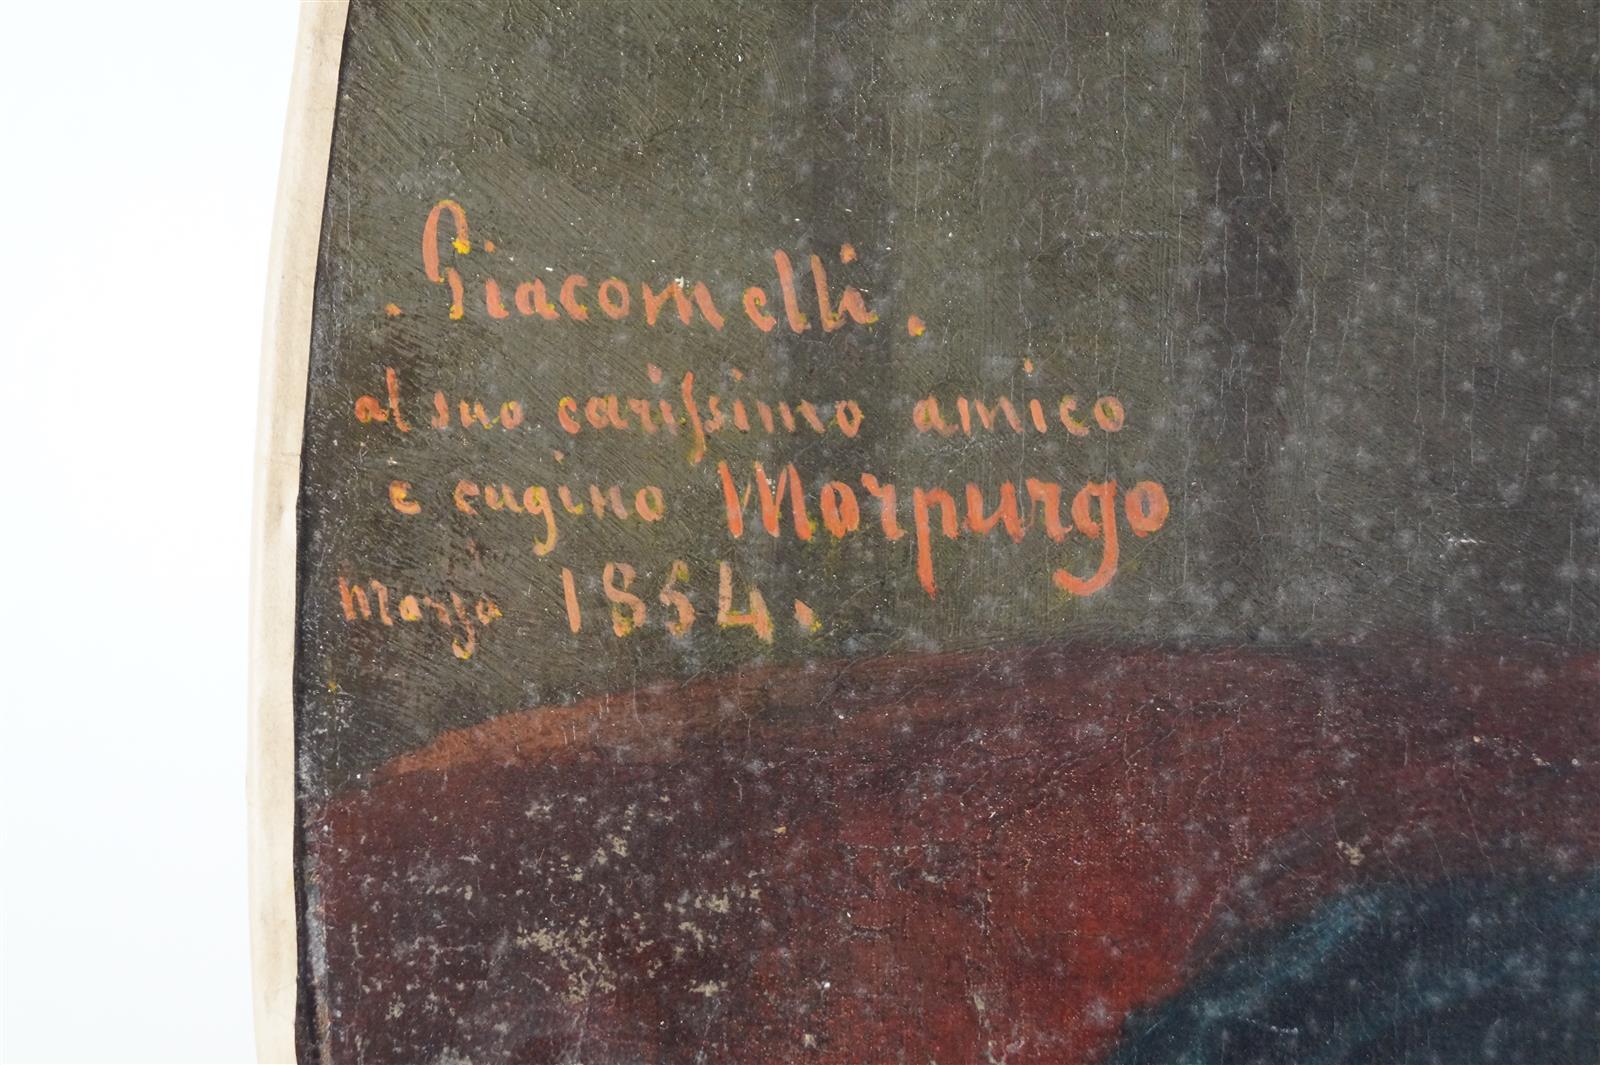 . Giacomelli.
al suo cariſsimo amico
e cugino Morpurgo
Marzo 1854.